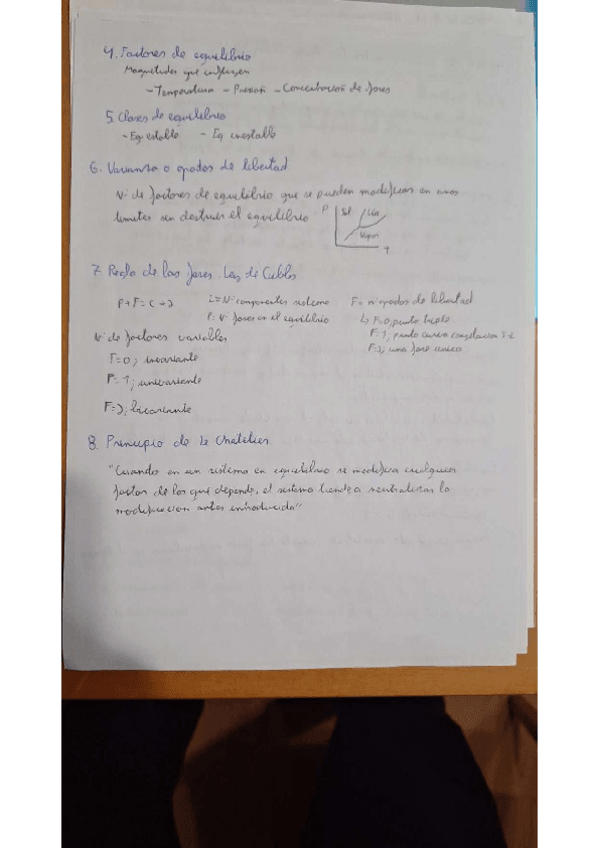 4. Factores de equilibrio
Magnitudes que influyen
- Temperatura - Presión - Concentración de fases
5. Clases de equilibrio
- Eq estable - Eq inestable
6. Varianza o grados de libertad
Nº de factores de equilibrio que se pueden modificar en unos
limites sin destruir el equilibrio
P Sol Líq
Vapor
T
7. Regla de las fases. Ley de Gibbs
P+F=C+2 C=Nº componentes sistema F=nº grados de libertad
P=Nº fases en el equilibrio ↳ F=0, punto triple
Nº de factores variables F=1, punto curva congelación S-L
F=0; invariante F=2, una fase unica
F=1; univariante
F=2; bivariante
8. Principio de le Chatelier
"Cuando en un sistema en equilibrio se modifica cualquier
factor de los que depende, el sistema tiende a neutralizar la
modificacion antes introducida"